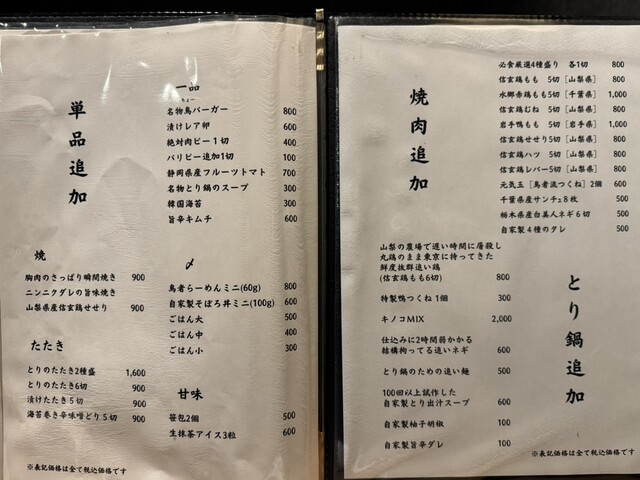 単品追加
一品
名物鳥バーガー 800
漬けレア卵 600
絶対肉ビー1切 400
パリピー追加1切 100
静岡県産フルーツトマト 700
名物とり鍋のスープ 300
韓国海苔 300
旨辛キムチ 600
焼
胸肉のさっぱり瞬間焼き 900
ニンニクダレの旨味焼き
山梨県産信玄鶏せせり 900
たたき
とりのたたき2種盛 1,600
とりのたたき6切 900
漬けたたき5切 900
海苔巻き辛味噌どり5切 900
〆
鳥者らーめんミニ(60g) 800
自家製そぼろ丼ミニ(100g) 600
ごはん大 500
ごはん中 400
ごはん小 300
甘味
笹包2個 500
生抹茶アイス3粒 600
※表記価格は全て税込価格です
焼肉追加
必食厳選4種盛り 各1切 800
信玄鶏もも 5切 [山梨県] 800
水郷赤鶏もも5切 [千葉県] 1,000
信玄鶏むね 5切 [山梨県] 800
岩手鴨もも 5切 [岩手県] 1,000
信玄鶏せせり5切 [山梨県] 800
信玄鶏ハツ 5切 [山梨県] 800
信玄鶏レバー5切 [山梨県] 800
元気玉 [鳥者流つくね] 2個 600
千葉県産サンチュ8枚 500
栃木県産白美人ネギ6切 500
自家製4種のタレ 500
とり鍋追加
山梨の農場で遅い時間に屠殺し
丸鶏のまま東京に持ってきた
鮮度抜群追い鶏
(信玄鶏もも6切) 800
特製鴨つくね 1個 300
キノコMIX 2,000
仕込みに2時間弱かかる
結構拘ってる追いネギ 600
とり鍋のための追い麺 500
100回以上試作した
自家製とり出汁スープ 600
自家製柚子胡椒 100
自家製旨辛ダレ 100
※表記価格は全て税込価格です